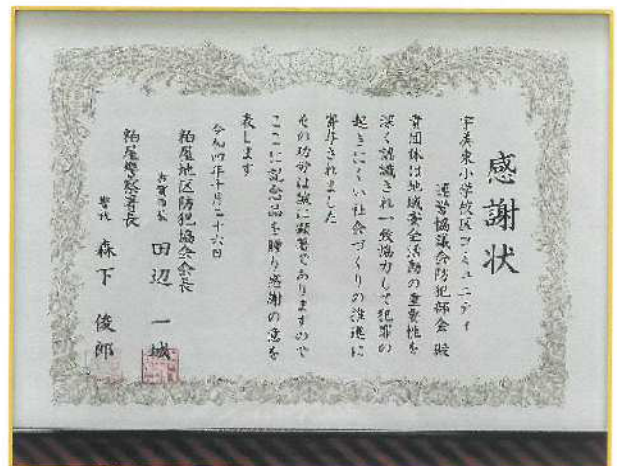 感謝状
宇美東小学校区コミュニティ
運営協議会防犯部会 殿
貴団体は地域安全活動の重要性を
深く認識され一致協力して犯罪の
起きにくい社会づくりの推進に
寄与されました
その功労は誠に顕著でありますので
ここに記念品を贈り感謝の意を
表します
令和四年十月二十六日
粕屋地区防犯協会会長
古賀市長 田辺 一城
粕屋警察署長
警視 森下 俊郎